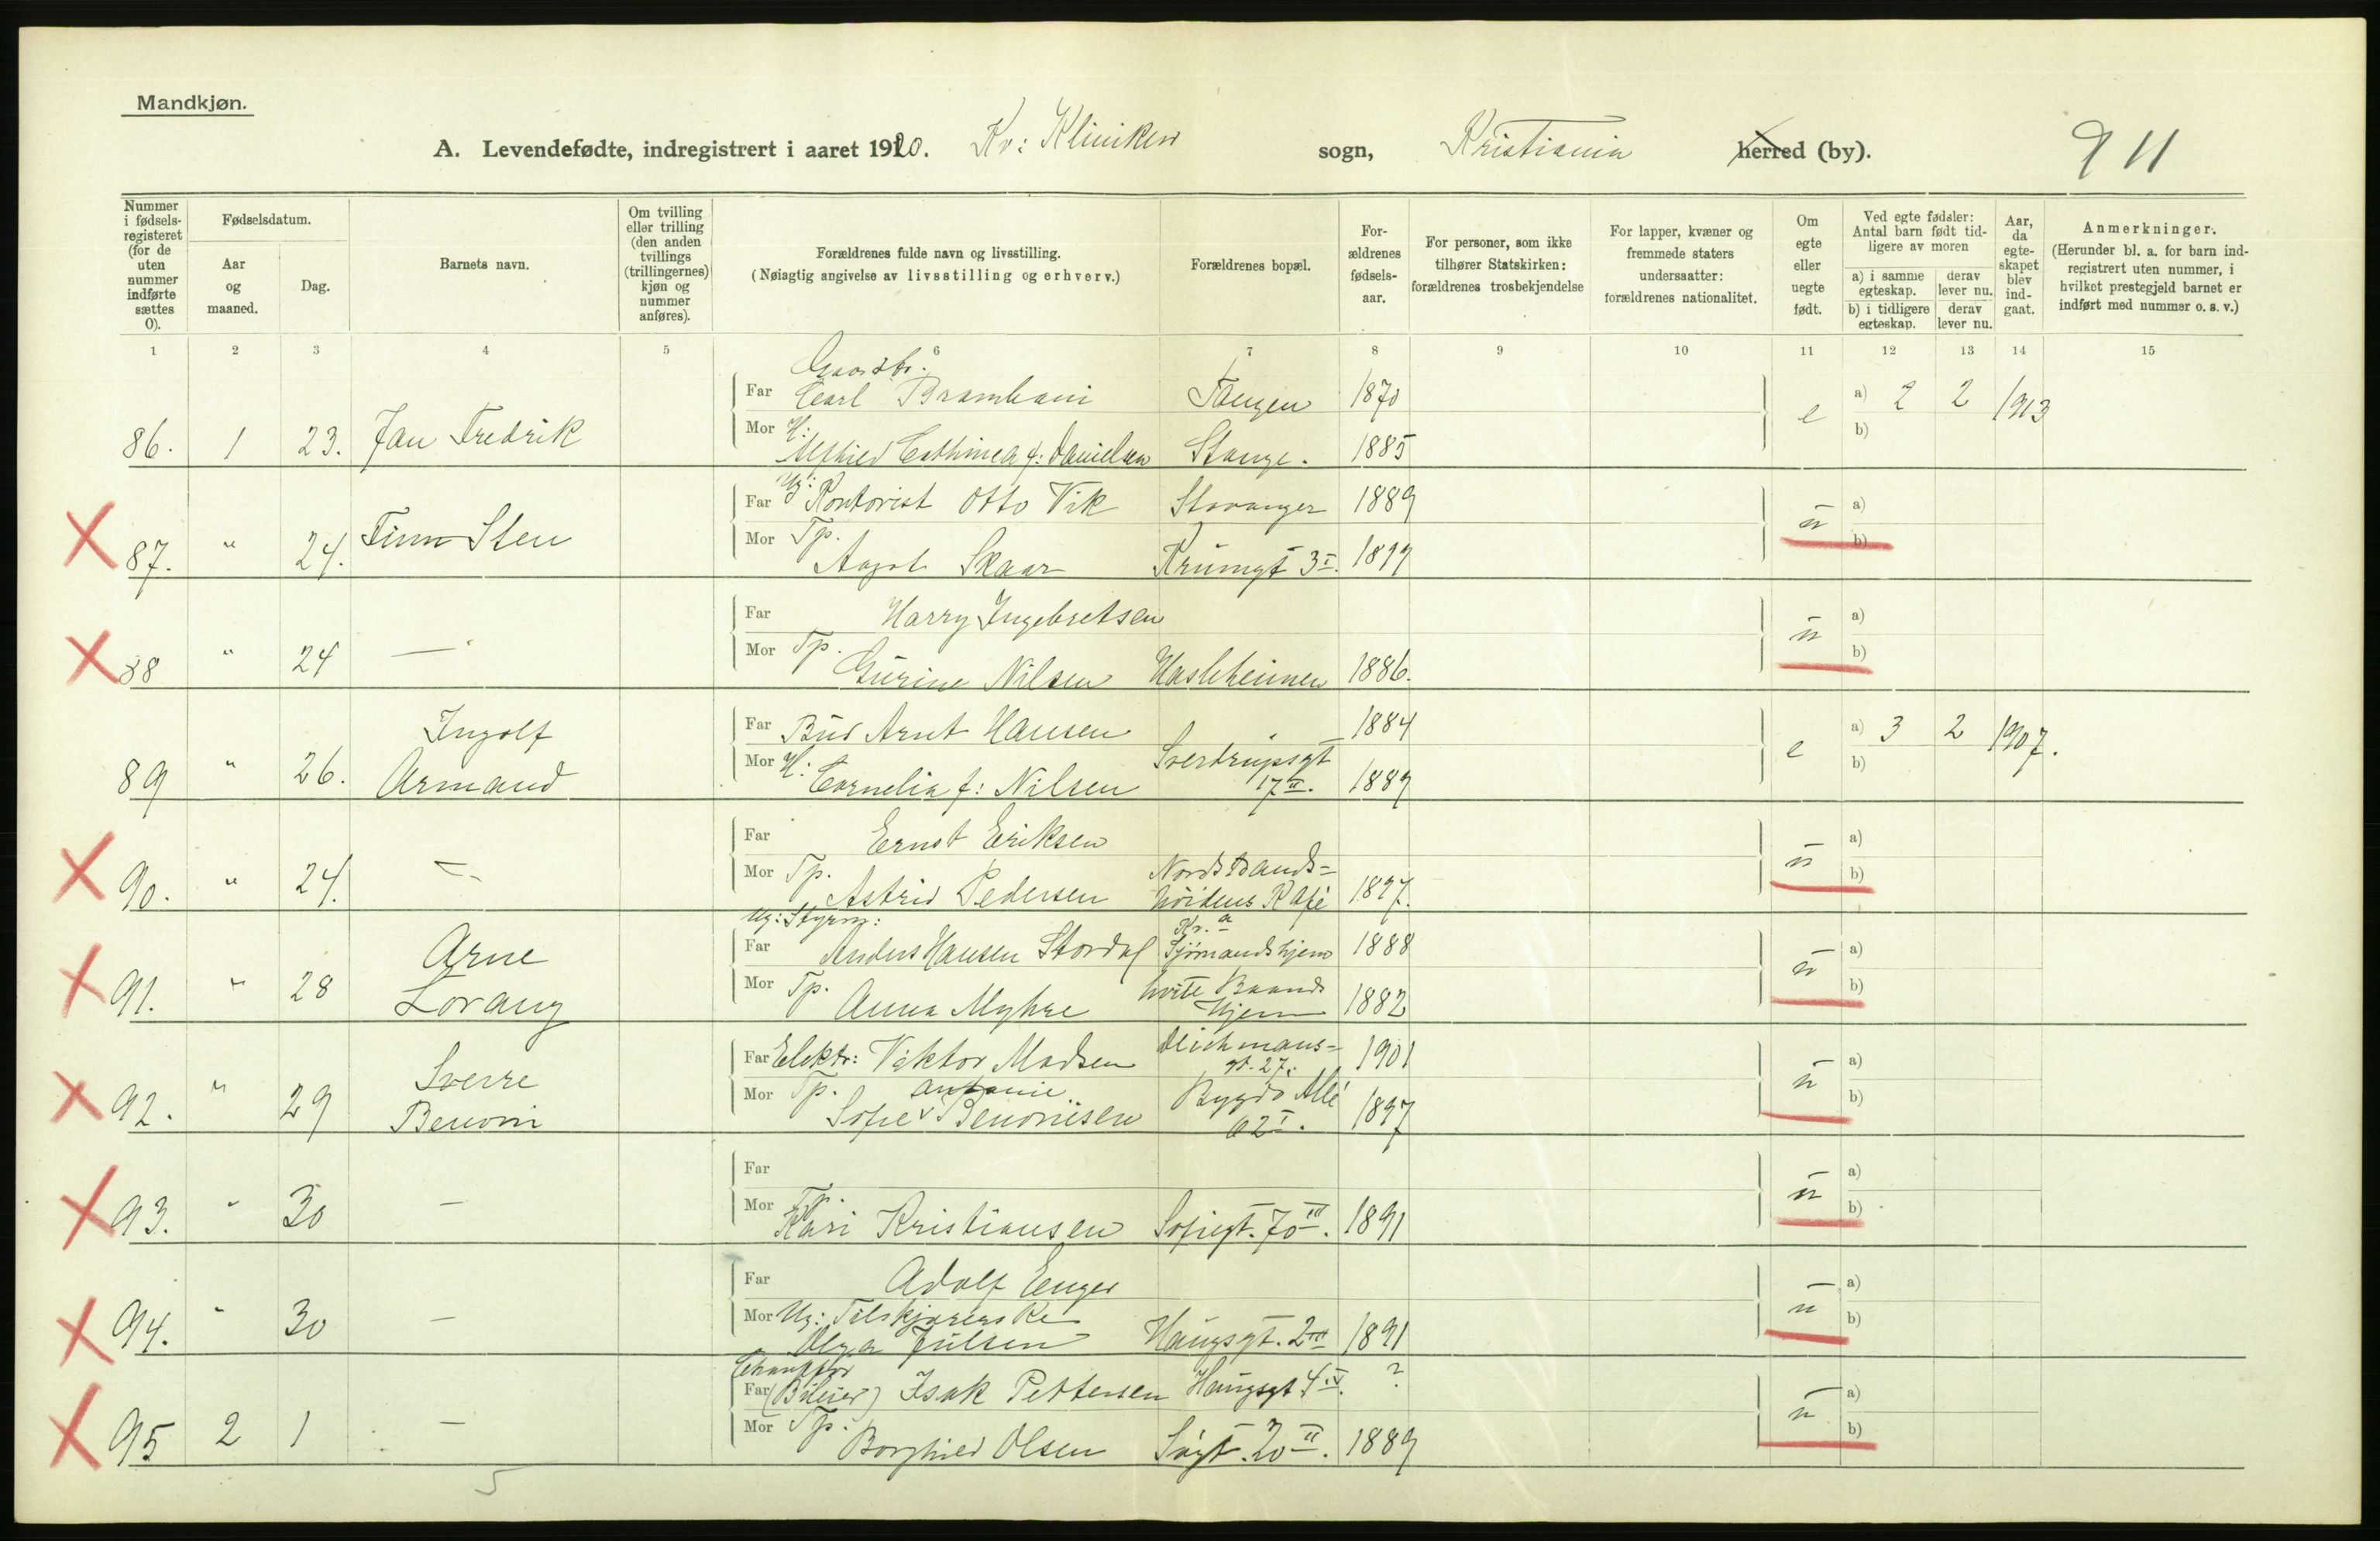 Mandkjøn.
A. Levendefødte, indregistrert i aaret 1920. Kv: Kliniken sogn, Kristiania herred (by). 911
Nummer i fødsels-registeret (for de uten nummer indførte sættes 0).
Fødselsdatum.
Aar og maaned.
Dag.
Barnets navn.
Om tvilling eller trilling (den anden tvillings (trillingernes) kjøn og nummer anføres).
Forældrenes fulde navn og livsstilling.
(Nøiagtig angivelse av livsstilling og erhverv.)
Forældrenes bopæl.
For-ældrenes fødsels-aar.
For personer, som ikke tilhører Statskirken: forældrenes trosbekjendelse
For lapper, kvæner og fremmede staters undersaatter: forældrenes nationalitet.
Om egte eller uegte født.
Ved egte fødsler: Antal barn født tid-ligere av moren
a) i samme egteskap. derav lever nu.
b) i tidligere egteskap. derav lever nu.
Aar, da egte-skapet blev ind-gaat.
Anmerkninger.
(Herunder bl. a. for barn ind-registrert uten nummer, i hvilket prestegjeld barnet er indført med nummer o. s. v.)
1 2 3 4 5 6 7 8 9 10 11 12 13 14 15
Gaardbr.
Far Carl Brambani Tangen 1870 a) 2 2 1913
86. 1 23. Jan Fredrik Mor H: Cathinca f: Danielsen Stange. 1885 e b)
Far Ug: Kontorist Otto Vik Stavanger 1889 a)
87. " 24. Finn Sten Mor Tp. Aagot Skaar Krumgt 3 I. 1899 u b)
Far Harry Ingebretsen a)
88 " 24 — Mor Tp. Gurine Nilsen Hasleheimen 1886. u b)
Ingolf Far Bud Arnt Hansen 1884 a) 3 2 1907.
89 " 26. Armand Mor H: Cornelia f: Nilsen Sverdrupsgt 17 II. 1889 e b)
Far Ernst Eriksen a)
90. " 24. — Mor Tp. Astrid Pedersen Nordstrands-höidens Kafé 1897. u b)
Ug: Styrm: Kr. a
Arne Far Anders Hansen Stordal Sjömandshjem 1888 a)
91. " 28 Lorang Mor Tp. Anna Myhre hvite Baands Hjem 1882 u b)
Sverre Far Elektr: Viktor Madsen Deichmans-gt. 27. 1901 a)
92. " 29 Benoni Mor Tp. Sofie Antonie Benonisen Bygdö Allé 62 I. 1897 u b)
Far a)
93. " 30 — Mor Tp. Kari Kristiansen Sofiegt. 70 III. 1891 u b)
Far Adolf Enger a)
94. " 30 — Mor Ug: Tilskjærerske Olga Julsen Haugsgt. 2 III 1891 u b)
Chauffør
Far (Bileier) Isak Pettersen Haugsgt 4 IV. ? a)
95 2 1 — Mor Tp. Borghild Olsen 20 II. 1889 u b)
5